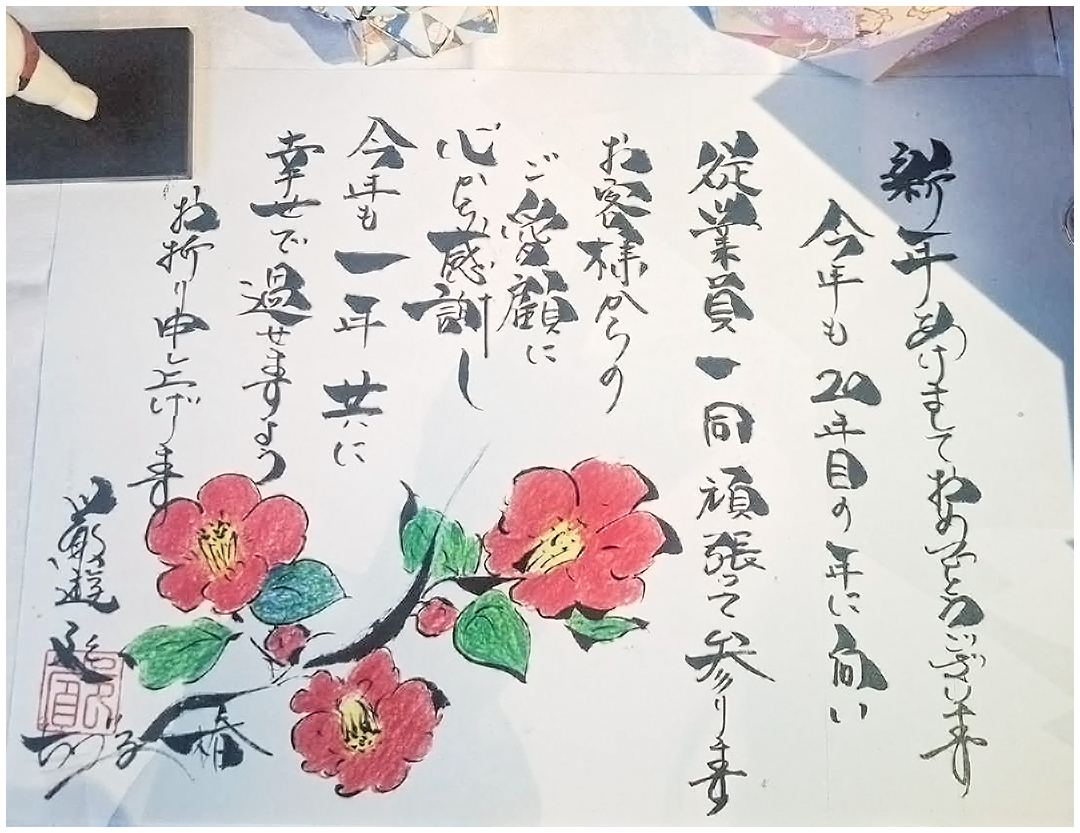 新年あけましておめでとうございます
今年も20年目の年に向い
従業員一同頑張って参ります
お客様からの
ご愛顧に
心から感謝し
今年も一年共に
幸せで過せますよう
お祈り申し上げます
厳選
椿